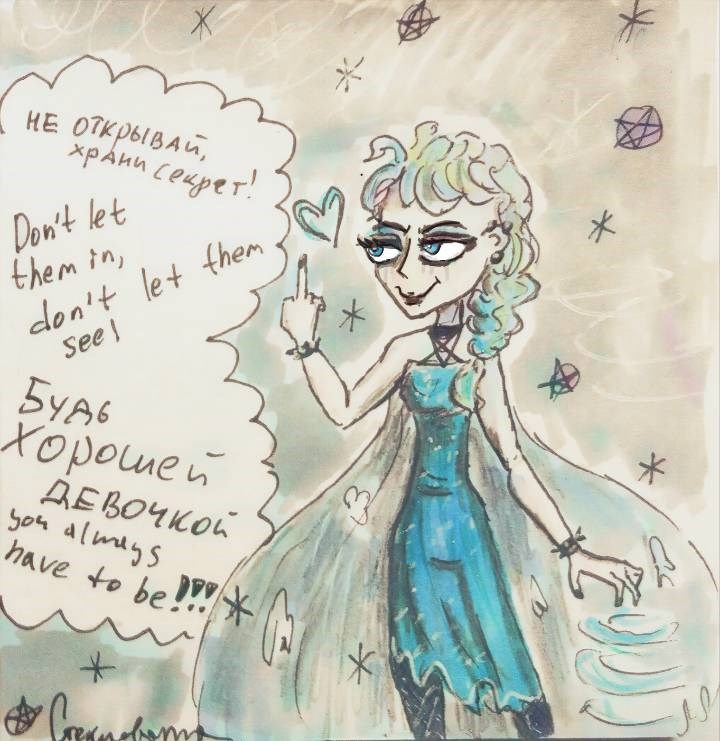 НЕ ОТКРЫВАЙ,
ХРАНИ СЕКРЕТ!
Don't let
them in,
don't let them
see!
Будь
Хорошей
ДЕВОЧКОЙ
you always
have to be!!!